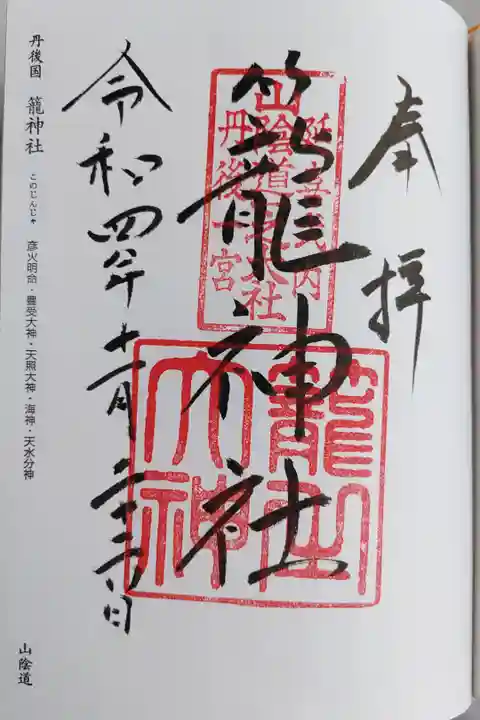 奉拝
籠神社
延喜式内
山陰道
大社
丹後一宮
籠
大神
令和四年
丹後国 籠神社 このじんじゃ 彦火明命・豊受大神・天照大神・海神・天水分神
山陰道